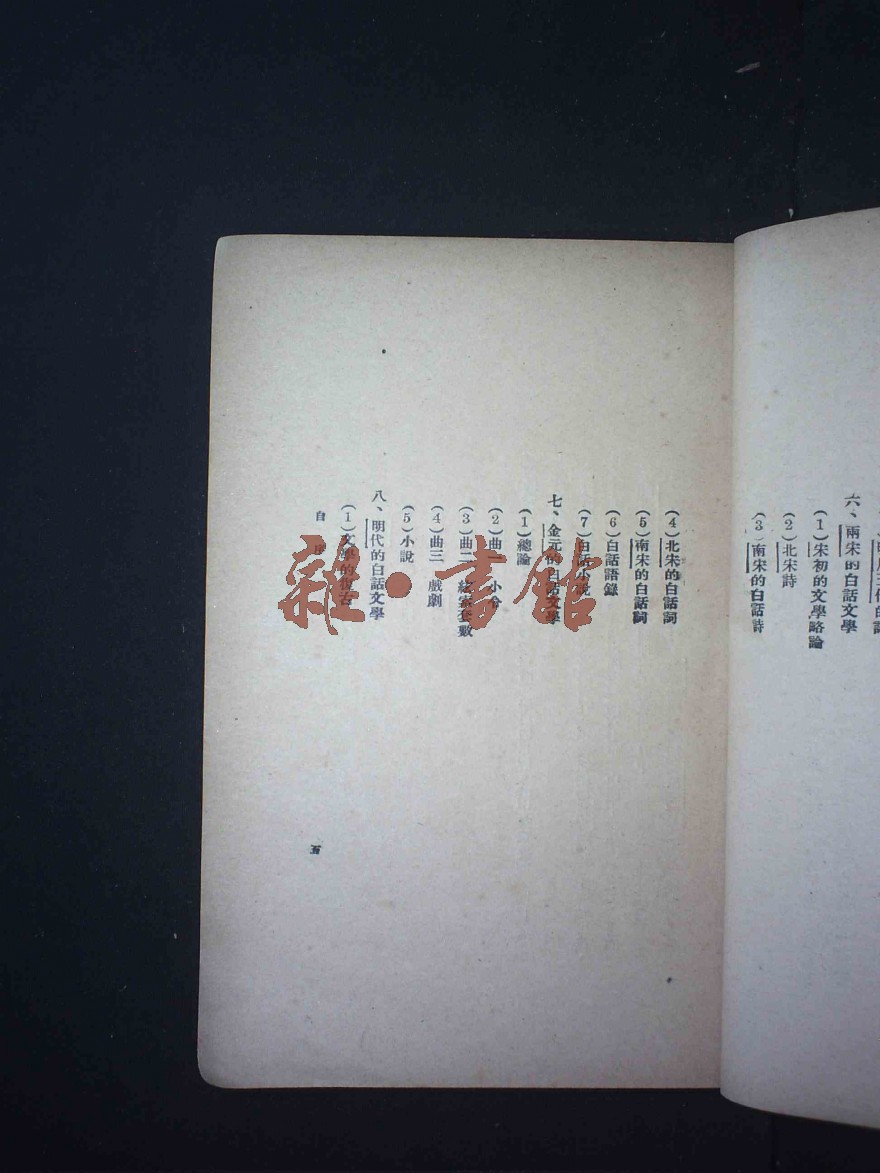 六、兩宋的白話文學
(1)宋初的文學略論
(2)北宋詩
(3)南宋的白話詩
(4)北宋的白話詞
(5)南宋的白話詞
(6)白話語錄
(7)白話小說
七、金元的白話文學
(1)總論
(2)曲一 小令
(3)曲二 絃索套數
(4)曲三 戲劇
(5)小說
八、明代的白話文學
(1)文學的復古
自序
五
雜·書館